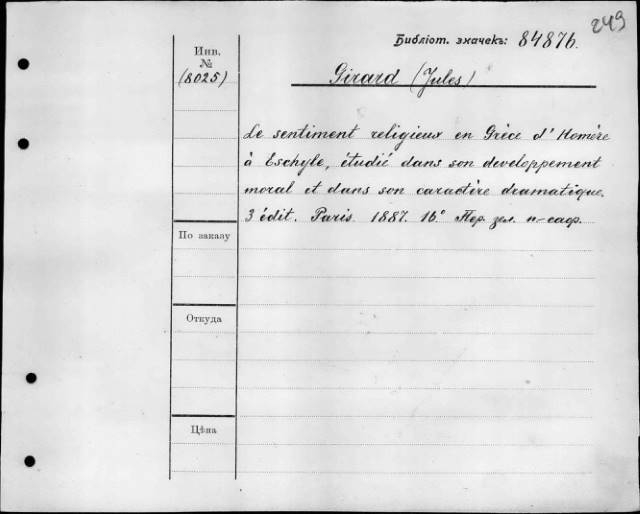 249
Библіот. значекъ: 84876.
Инв.
№
(8025)
Girard (Jules)
Le sentiment religieux en Grèce d'Homère
à Eschyle, étudié dans son developpement
moral et dans son caractère dramatique.
3 édit. Paris 1887. 16° Пер. зел. п-саф.
По заказу
Откуда
Цѣна